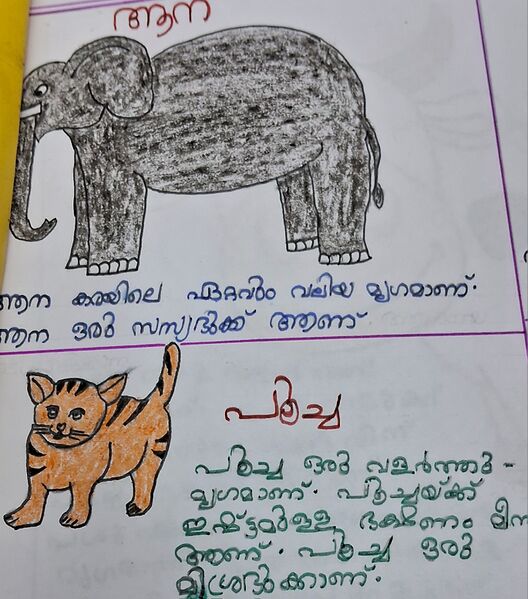 ആന
ആന കരയിലെ ഏറ്റവും വലിയ മൃഗമാണ്.
ആന ഒരു സസ്യഭുക്ക് ആണ്.
പൂച്ച
പൂച്ച ഒരു വളർത്തു-
മൃഗമാണ്. പൂച്ചയ്ക്ക്
ഇഷ്ട്ടമുള്ള ഭക്ഷണം മീന
ആണ്. പൂച്ച ഒരു
മിശ്രഭുക്കാണ്.